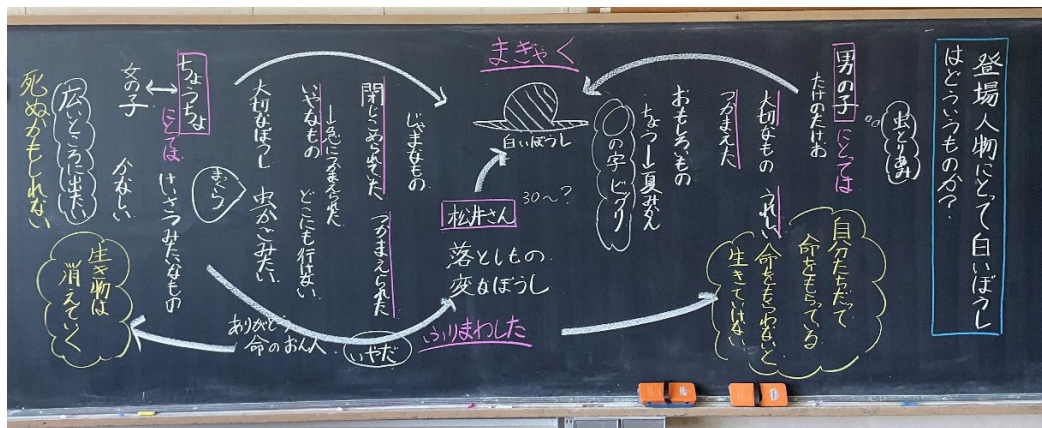 登場人物にとって白いぼうし
はどういうものか?
虫とりあみ
男の子にとっては
たけのたけお
大切なもの うれしい
つかまえた
おもしろいもの
ちょう→夏みかん
○の字ビックリ
自分たちだって
命をもらっている
命をもらわないと
生きていけない
まぎゃく
白いぼうし
30~?
松井さん
落としもの
変なぼうし
ふりまわした
じゃまなもの
閉じこめられていた つかまえられた
いやなもの どこにも行けない
大切なぼうし 虫かごみたい
まっくら
ちょうちょ
にとっては
けいさつみたいなもの
女の子
かなしい
広いところに出たい
死ぬかもしれない
生き物は
消えていく
ありがとう
命のおん人
いやだ